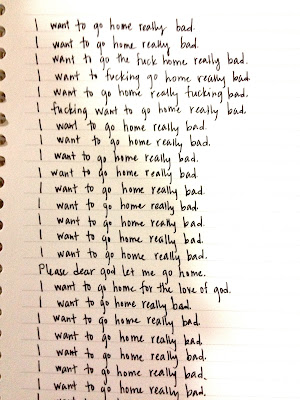 I want to go home really bad.
I want to go home really bad.
I want to go the fuck home really bad.
I want to fucking go home really bad.
I want to go home really fucking bad.
I fucking want to go home really bad.
I want to go home really bad.
I want to go home really bad.
I want to go home really bad.
I want to go home really bad.
I want to go home really bad.
I want to go home really bad.
I want to go home really bad.
I want to go home really bad.
I want to go home really bad.
Please dear god let me go home.
I want to go home for the love of god.
I want to go home really bad.
I want to go home really bad.
I want to go home really bad.
I want to go home really bad.
I want to go home really bad.
I want to go home really bad.
I want to go home really bad.